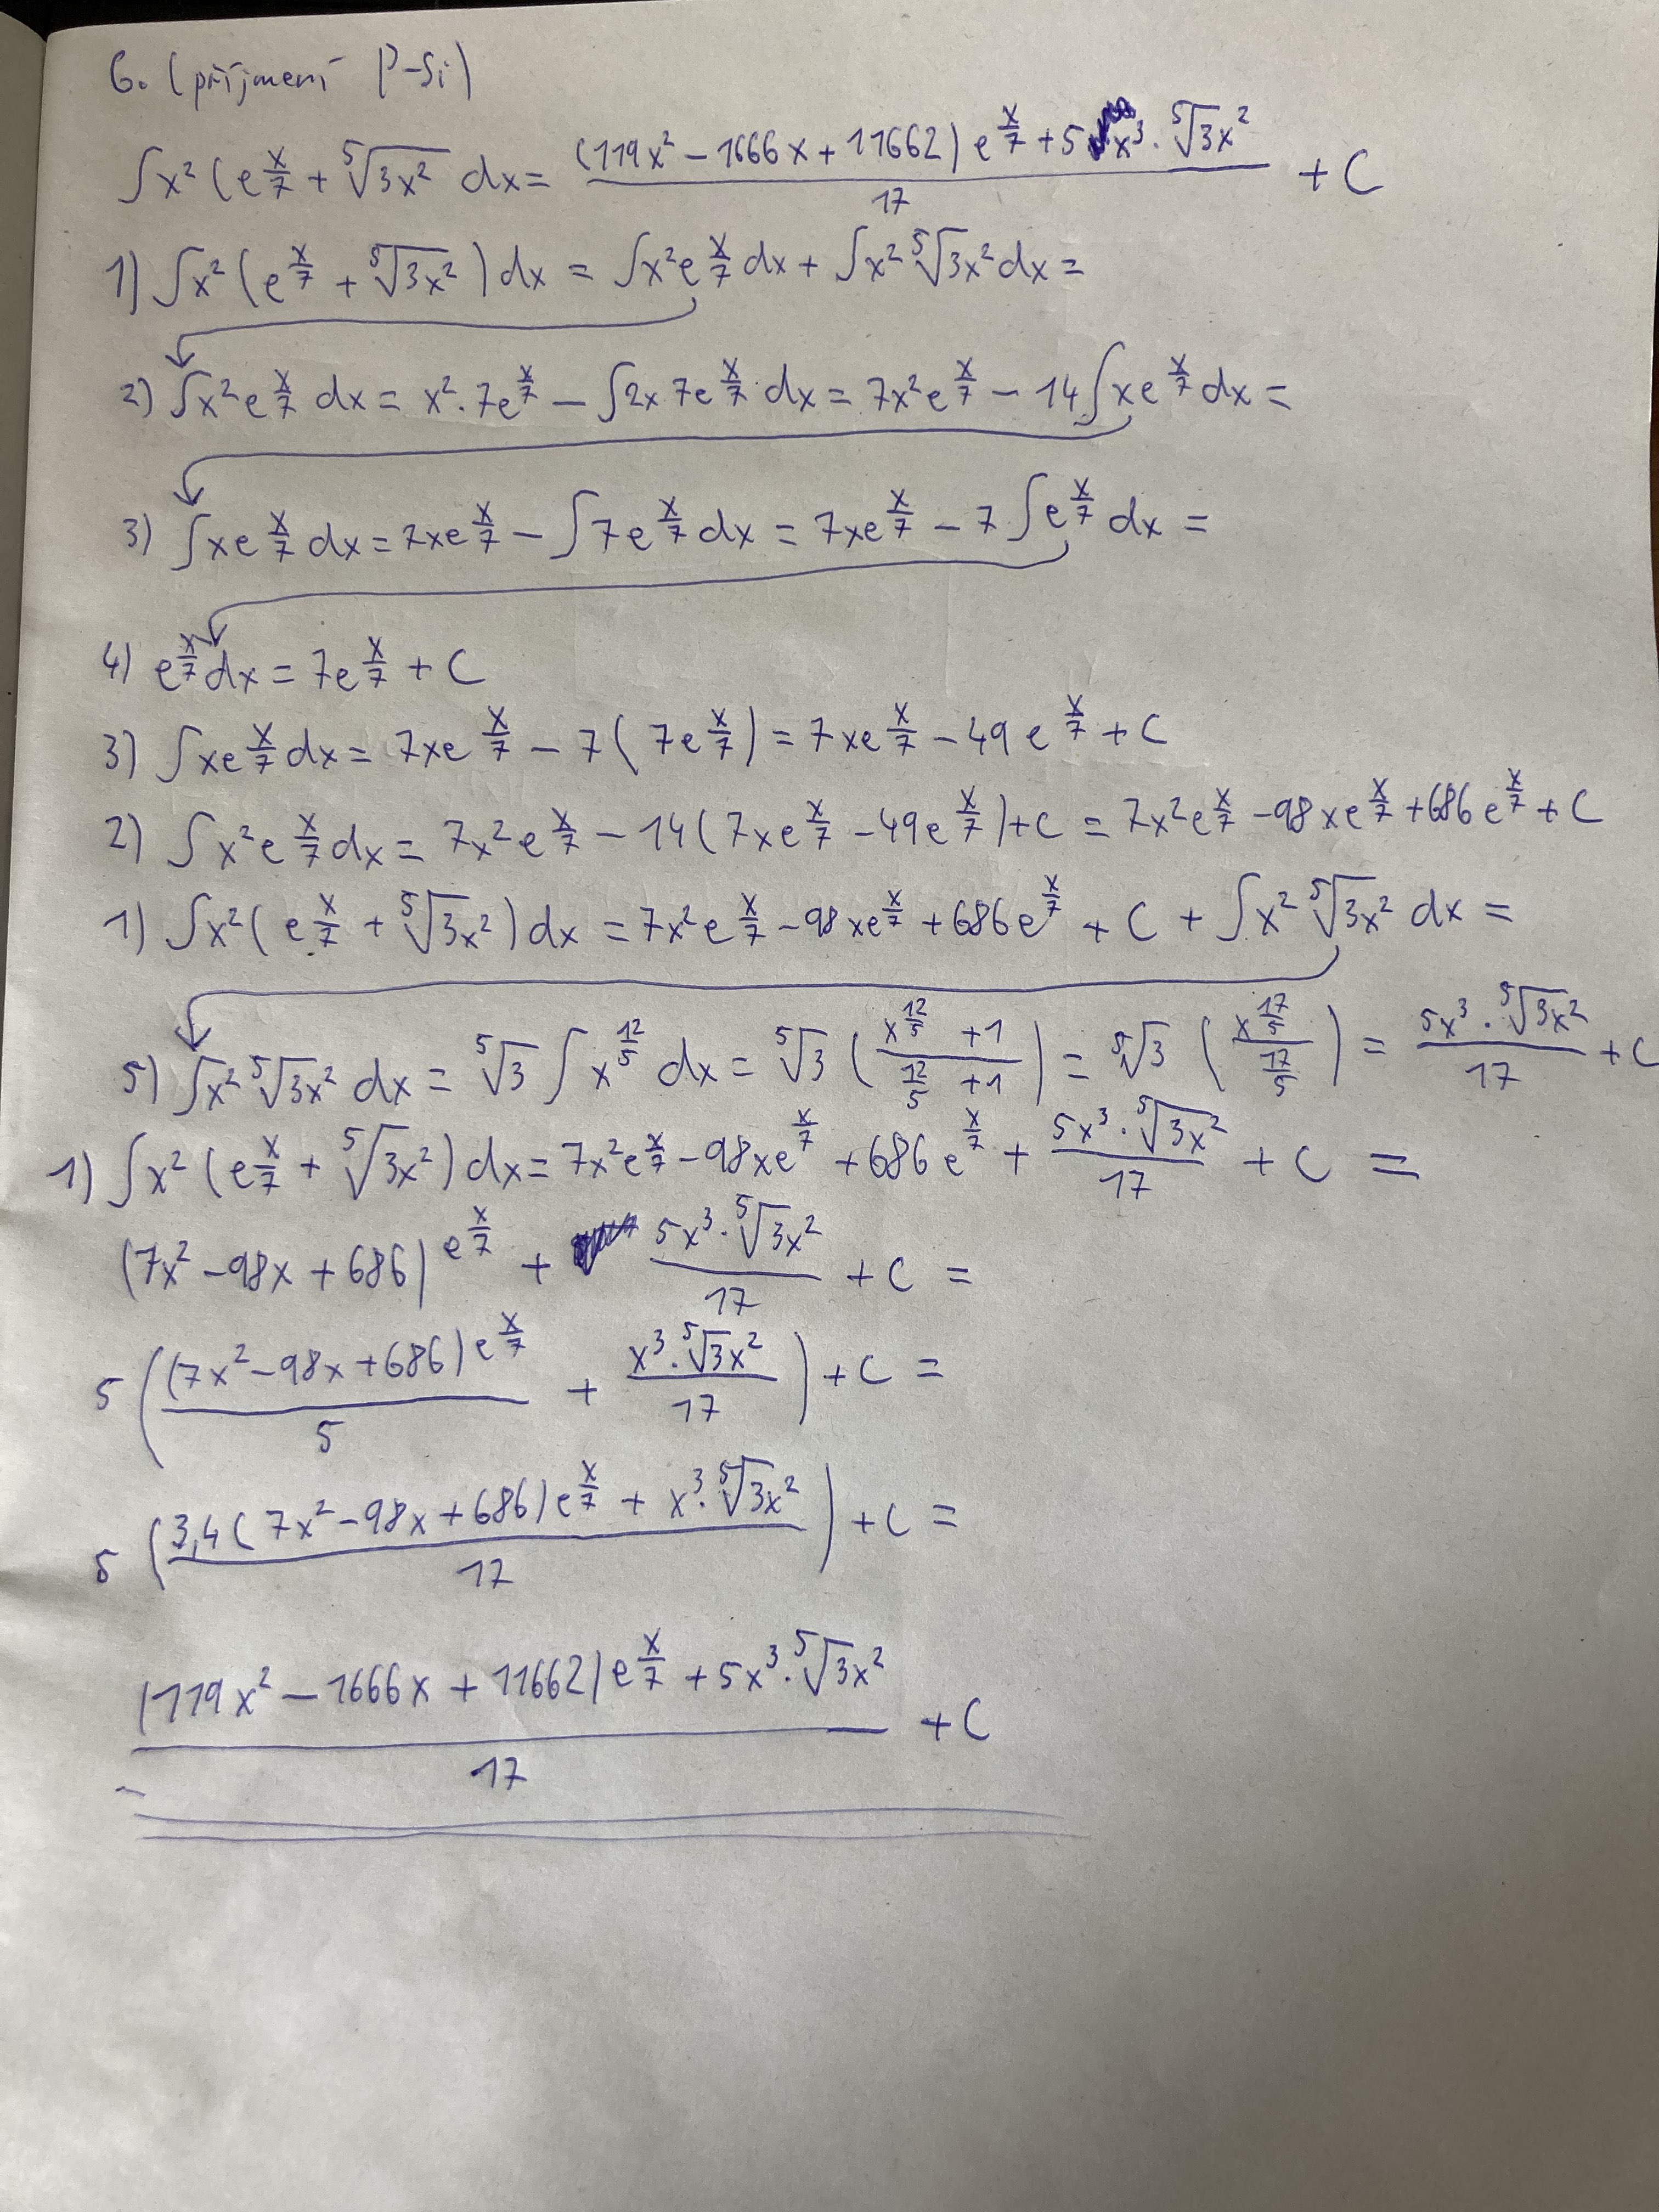 6. (příjmení P-Si)
∫x² (e^(x/7) + ⁵√(3x²) dx = ((119x² − 1666x + 11662) e^(x/7) + 5x³ · ⁵√(3x²))/17 + C
1) ∫x² (e^(x/7) + ⁵√(3x²)) dx = ∫x² e^(x/7) dx + ∫x² ⁵√(3x²) dx =
2) ∫x² e^(x/7) dx = x² · 7e^(x/7) − ∫2x 7e^(x/7) dx = 7x² e^(x/7) − 14 ∫x e^(x/7) dx =
3) ∫x e^(x/7) dx = 7x e^(x/7) − ∫7e^(x/7) dx = 7x e^(x/7) − 7 · ∫e^(x/7) dx =
4) e^(x/7) dx = 7e^(x/7) + C
3) ∫x e^(x/7) dx = 7x e^(x/7) − 7 (7e^(x/7)) = 7x e^(x/7) − 49 e^(x/7) + C
2) ∫x² e^(x/7) dx = 7x² e^(x/7) − 14 (7x e^(x/7) − 49e^(x/7)) + C = 7x² e^(x/7) − 98x e^(x/7) + 686 e^(x/7) + C
1) ∫x² (e^(x/7) + ⁵√(3x²)) dx = 7x² e^(x/7) − 98x e^(x/7) + 686e^(x/7) + C + ∫x² ⁵√(3x²) dx =
5) ∫x² ⁵√(3x²) dx = ⁵√3 ∫x^(12/5) dx = ⁵√3 ((x^(12/5) + 1)/(12/5 + 1)) = ⁵√3 (x^(17/5)/(17/5)) = (5x³ · ⁵√(3x²))/17 + C
1) ∫x² (e^(x/7) + ⁵√(3x²)) dx = 7x² e^(x/7) − 98x e^(x/7) + 686 e^(x/7) + (5x³ · ⁵√(3x²))/17 + C =
(7x² − 98x + 686) e^(x/7) + (5x³ · ⁵√(3x²))/17 + C =
5 (((7x² − 98x + 686) e^(x/7))/5 + (x³ · ⁵√(3x²))/17) + C =
5 ((3,4 (7x² − 98x + 686) e^(x/7) + x³ · ⁵√(3x²))/17) + C =
((119x² − 1666x + 11662) e^(x/7) + 5x³ · ⁵√(3x²))/17 + C